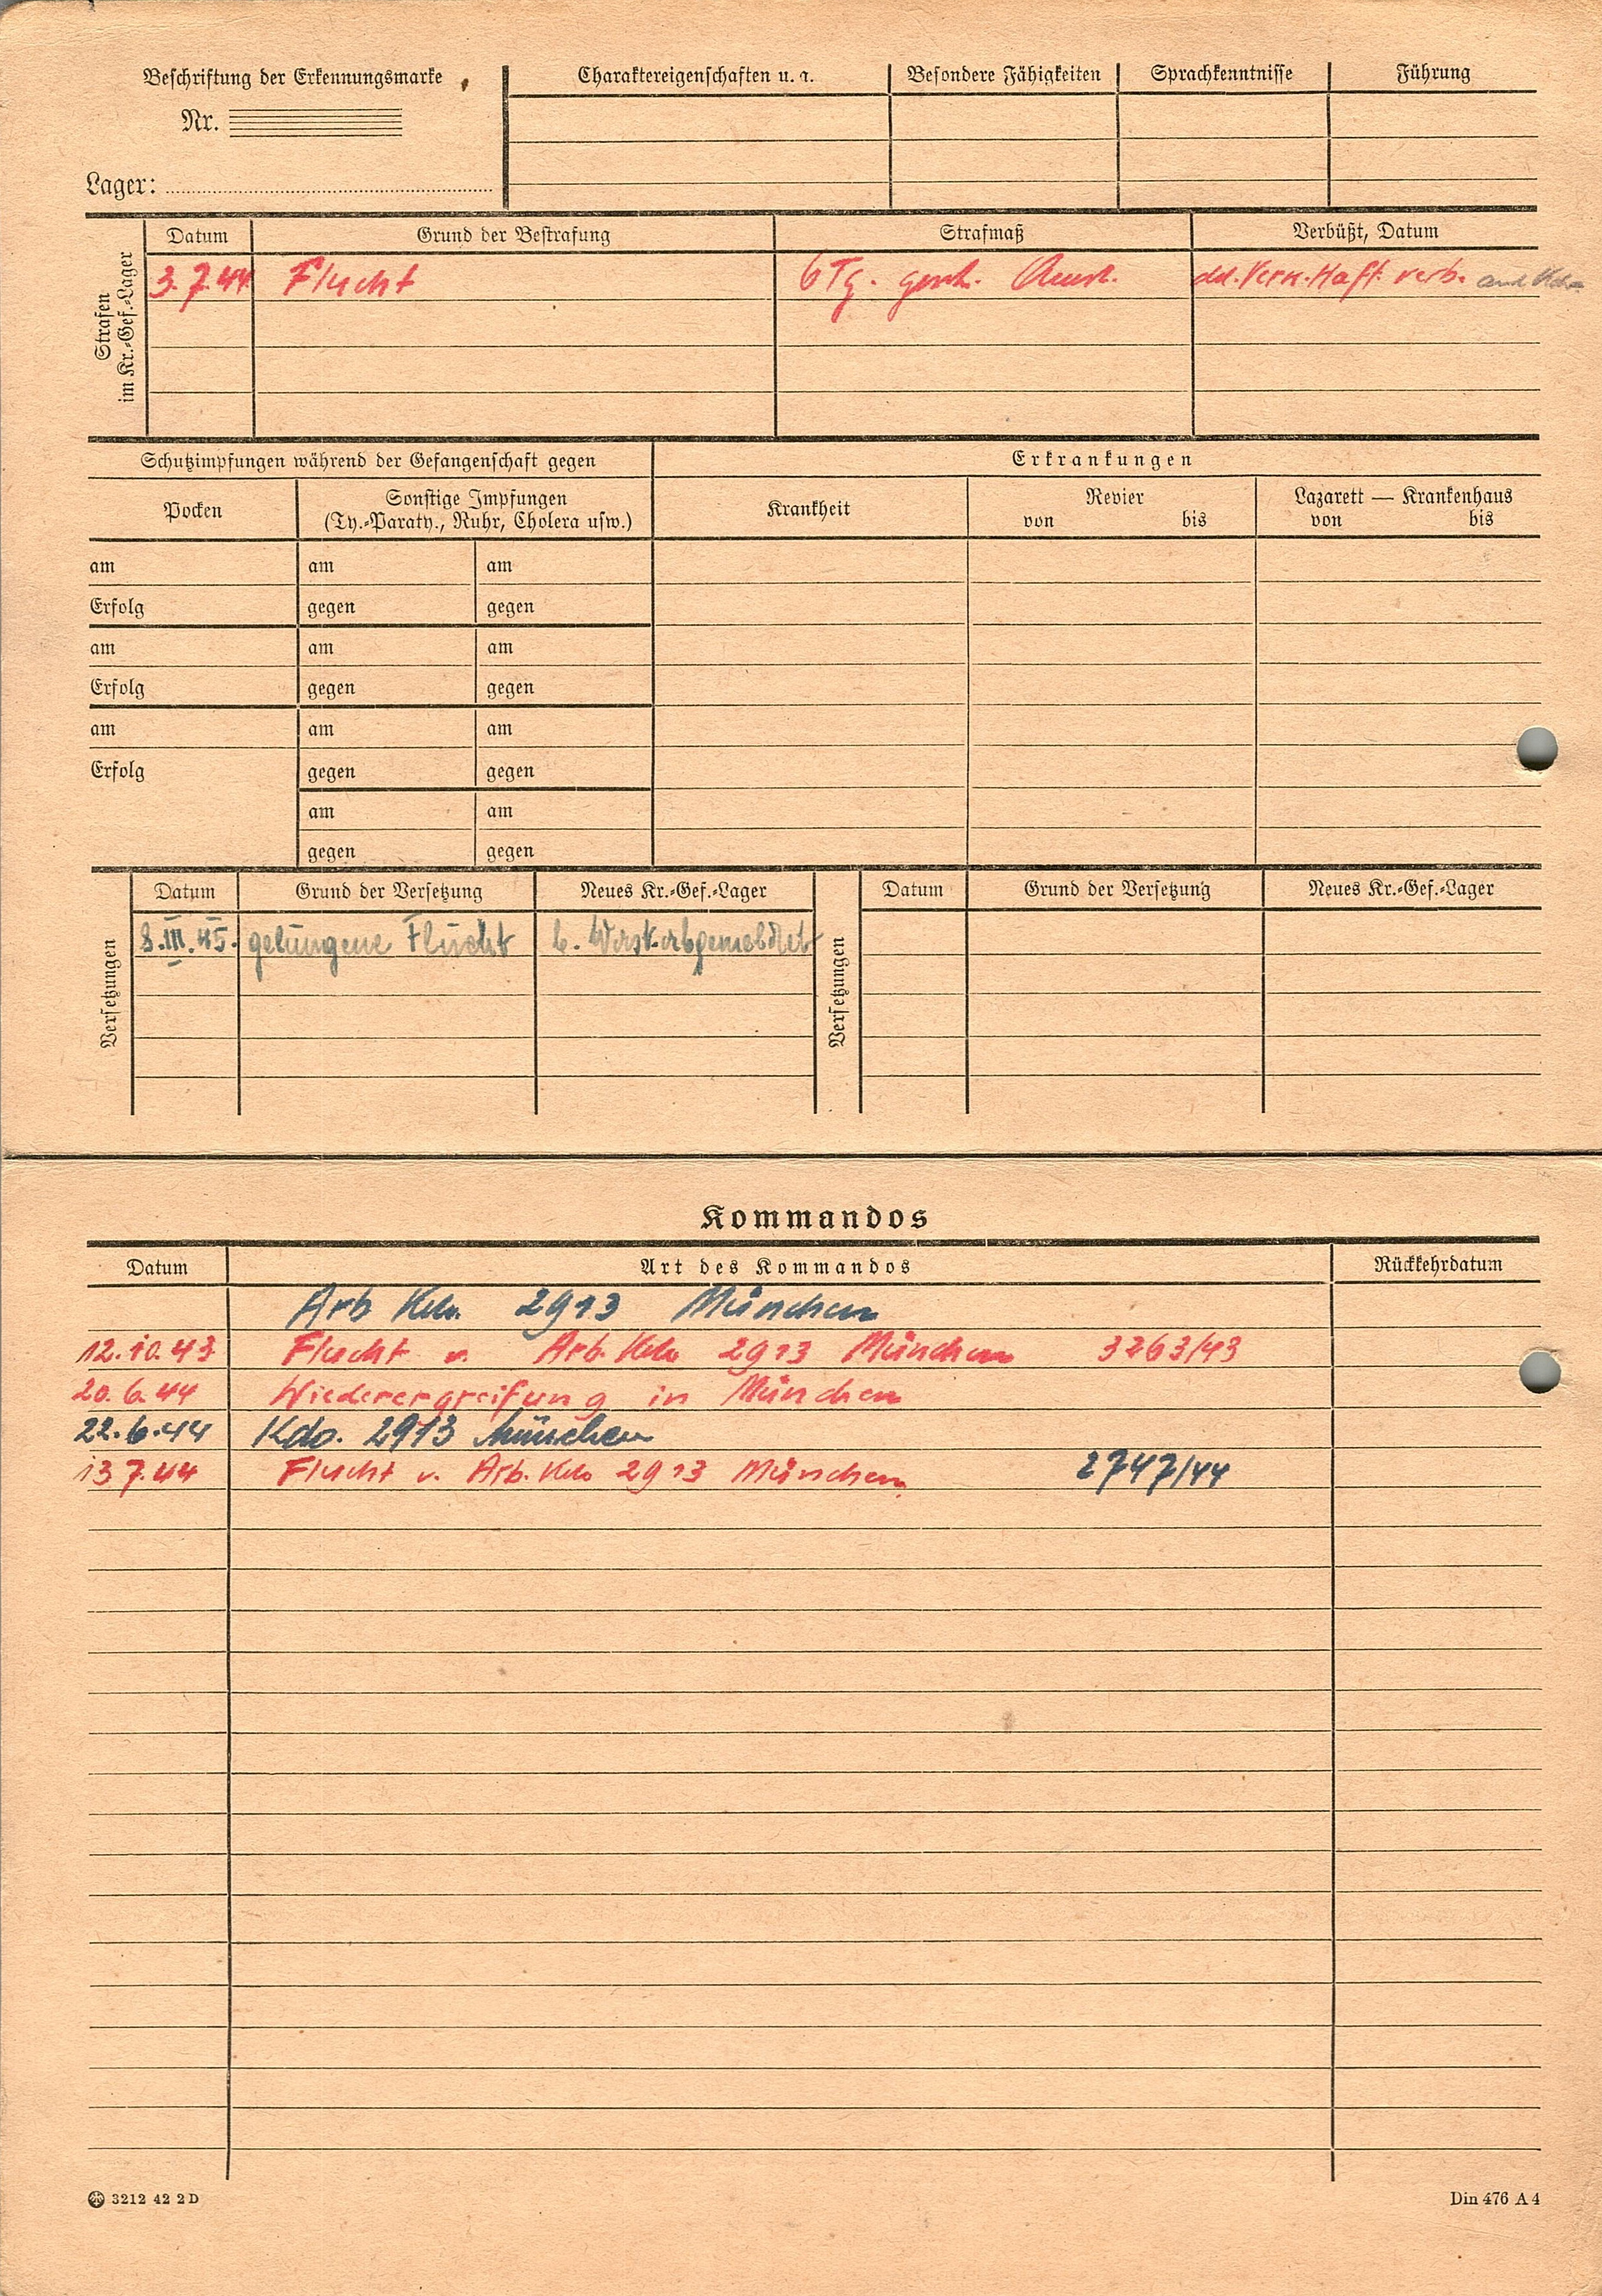 Beschriftung der Erkennungsmarke
Nr.
Lager:
Charaktereigenschaften u. a.
Besondere Fähigkeiten
Sprachkenntnisse
Führung
Strafen
im Kr.-Gef.-Lager
Datum Grund der Bestrafung Strafmaß Verbüßt, Datum
3.7.44 Flucht 6 Tg. gesch. Arrest. verb.
Schutzimpfungen während der Gefangenschaft gegen
Erkrankungen
Pocken
Sonstige Impfungen
(Ty.-Paraty., Ruhr, Cholera usw.)
Krankheit
Revier
von bis
Lazarett — Krankenhaus
von bis
am am am
Erfolg gegen gegen
am am am
Erfolg gegen gegen
am am am
Erfolg gegen gegen
am am
gegen gegen
Versetzungen
Datum Grund der Versetzung Neues Kr.-Gef.-Lager
8.III.45. gelungene Flucht b. Wast. abgemeldet
Versetzungen
Datum Grund der Versetzung Neues Kr.-Gef.-Lager
Kommandos
Datum Art des Kommandos Rückkehrdatum
Arb Kdo. 2913 München
12.10.43 Flucht v. Arb. Kdo 2913 München 3263/43
20.6.44 Wiederergreifung in München
22.6.44 Kdo. 2913 München
13.7.44 Flucht v. Arb. Kdo 2913 München 2747/44
3212 42 2 D
Din 476 A 4